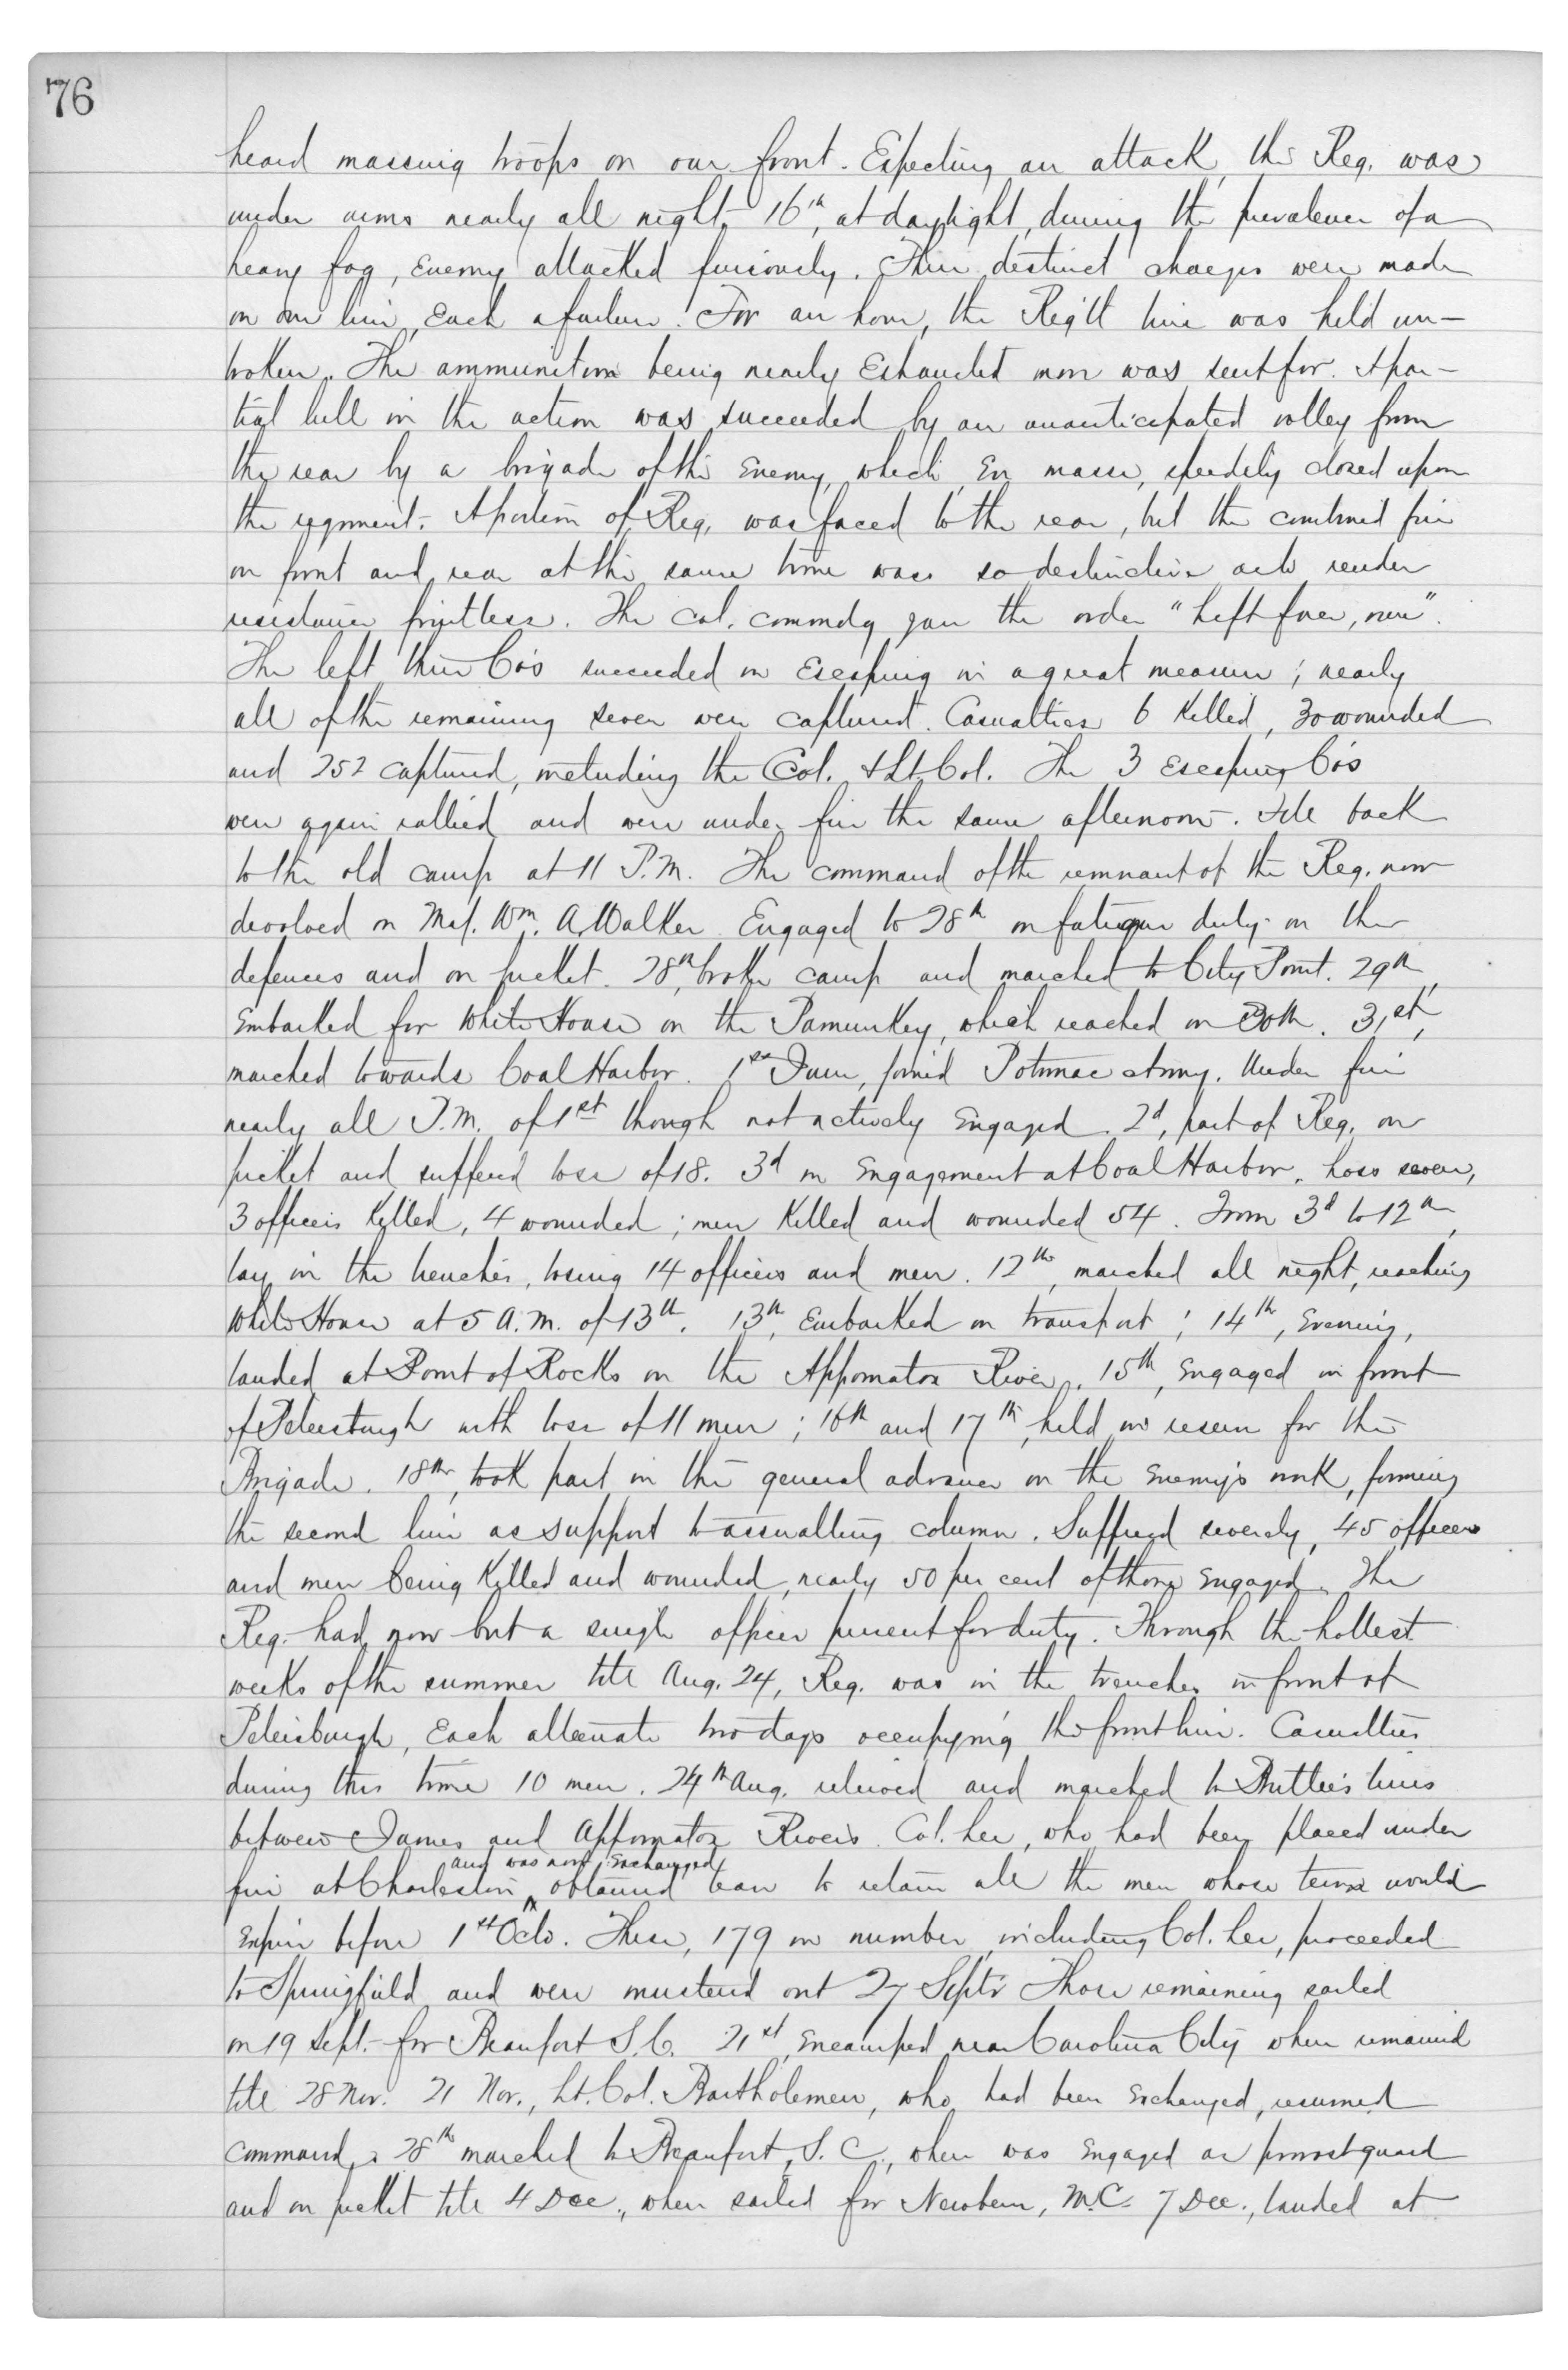 76
heard massing troops on our front. Expecting an attack, the Reg. was
under arms nearly all night. 16th, at daylight, during the prevalence of a
heavy fog, Enemy attacked furiously. Three distinct charges were made
on our line, Each a failure. For an hour, the Reg'tl line was held un-
broken. The ammunition being nearly Exhausted more was sent for. A par-
tial lull in the action was succeeded by an unanticipated volley from
the rear by a brigade of the Enemy, which, En masse, speedily closed upon
the regiment. A portion of Reg. was faced to the rear, but the combined fire
on front and rear at the same time was so destructive as to render
resistance fruitless. The Col. commndg gave the order "Left face, run".
The left three Co's succeeded in Escaping in a great measure; nearly
all of the remaining seven were captured. Casualties 6 Killed, 30 wounded
and 252 captured, including the Col. & Lt. Col. The 3 Escaping Co's
were again rallied and were under fire the same afternoon. Fell back
to the old camp at 11 P.M. The command of the remnant of the Reg. now
devolved on Maj. Wm. A. Walker. Engaged to 28th on fatigue duty on the
defences and on picket. 28th, broke camp and marched to City Point. 29th,
Embarked for White House on the Pamunkey, which reached on 30th. 31st,
marched towards Coal Harbor. 1st June, joined Potomac Army. Under fire
nearly all P.M. of 1st though not actively Engaged. 2d, part of Reg. on
picket and suffered loss of 18. 3d in Engagement at Coal Harbor. Loss seven,
3 officers Killed, 4 wounded; men Killed and wounded 54. From 3d to 12th,
lay in the trenches, losing 14 officers and men. 12th, marched all night, reaching
White House at 5 A.M. of 13th. 13th, Embarked on transport; 14th, Evening,
landed at Point of Rocks on the Appomatox River. 15th, Engaged in front
of Petersburgh with loss of 11 men; 16th and 17th, held in reserve for the
Brigade. 18th, took part in the general advance on the Enemy's work, forming
the second line as support to assaulting column. Suffered severely, 45 officers
and men being Killed and wounded, nearly 50 per cent of those Engaged. The
Reg. had now but a single officer present for duty. Through the hottest
weeks of the summer till Aug. 24, Reg. was in the trenches in front of
Petersburgh, Each alternate two days occupying the front line. Casualties
during this time 10 men. 24th Aug. relieved and marched to Butler's lines
between James and Appomatox Rivers. Col. Lee, who had been placed under
and was now Exchanged
fire at Charleston, obtained leave to retain all the men whose terms would
Expire before 1st Octo. These, 179 in number, including Col. Lee, proceeded
to Springfield and were mustered out 27 Septr. Those remaining sailed
on 19 Sept. for Beaufort S.C. 21st, Encamped near Carolina City where remained
till 28 Nov. 21 Nov., Lt. Col. Bartholemew, who had been Exchanged, resumed
command. 28th marched to Beaufort, S.C., where was Engaged as provost guard
and on picket till 4 Dec., when sailed for Newbern, N.C. 7 Dec., landed at